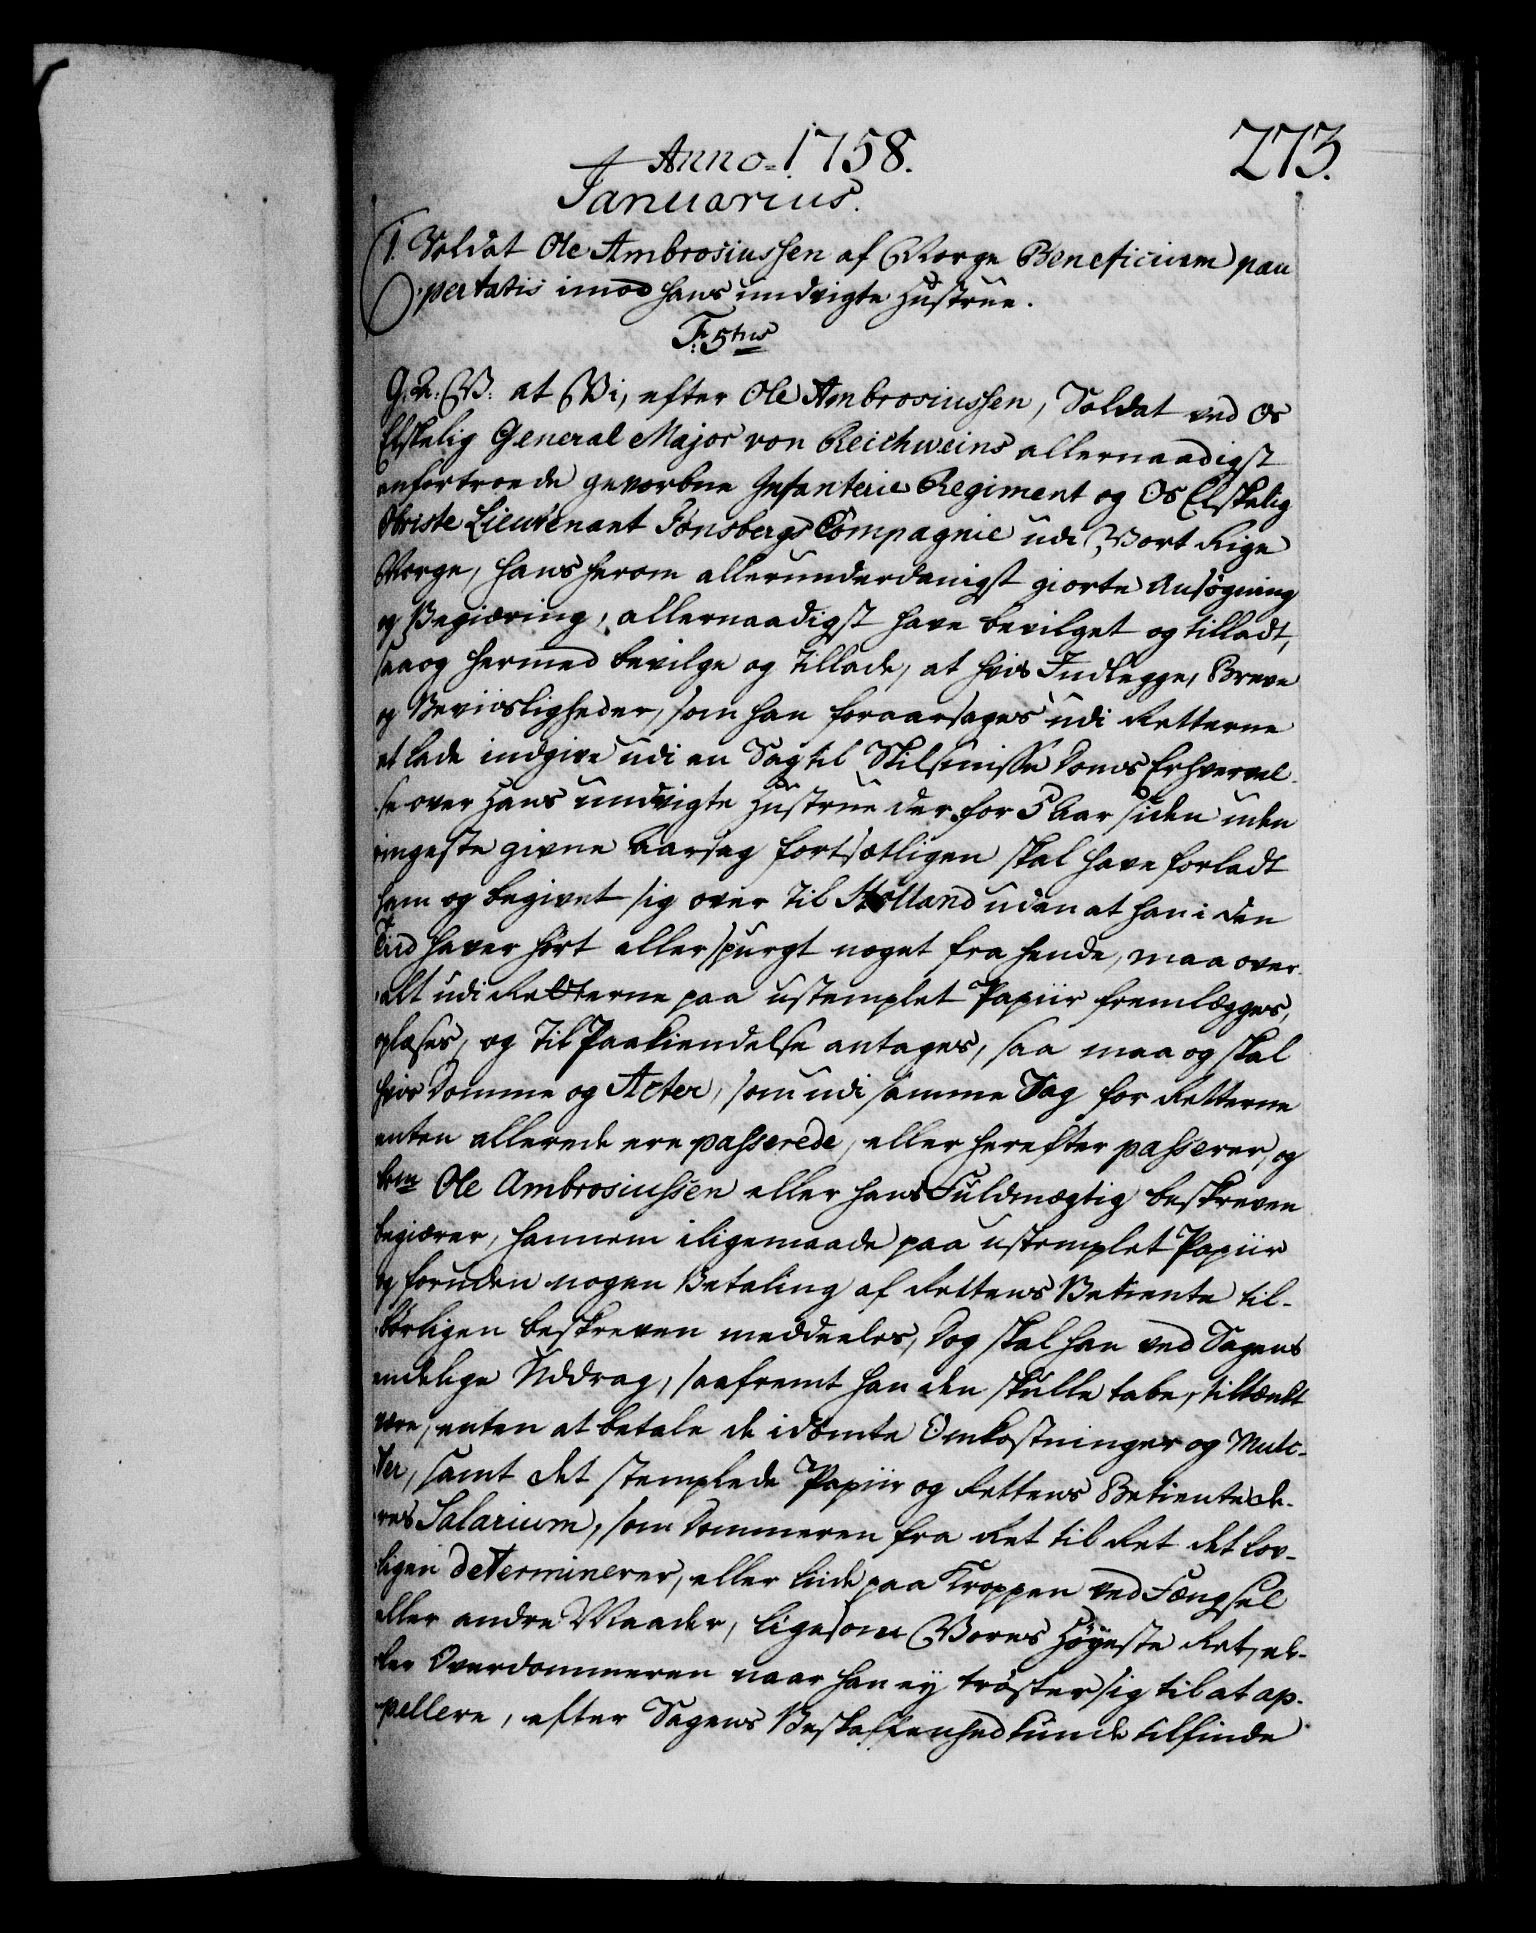 Anno 1758.
273.
Januarius.
1. Soldat Ole Ambrosiussen af Norge Beneficium pau
pertatis imod hans undvigte Hustrue.
F: 5te
G. A. V: at Vi, efter Ole Ambrosiussen, Soldat ved Os
Elskelig General Major von Reichweins allernaadigst
anfortroede gevorbne Infanterie Regiment og Os Elskelig
Obriste Lieutenant Tønsbergs Compagnie udi Vort Rige
Norge, hans herom allerunderdanigst giorte Ansøgning
og Begiæring, allernaadigst have bevilget og tilladt,
saa og hermed bevilge og tillade, at hvis Indlegge, Breve
og Beviisligheder, som han foraarsages udi Retterne
at lade indgive udi en Sag til Skilsmisse Doms Erhvervel-
se over Hans undvigte Hustrue der for 5 Aar siden uden
ringeste givne Aarsag fortsætligen skal have forladt
ham og begivet sig over til Holland uden at han i den
Tiid haver hørt eller spurgt noget fra hende, maa over-
alt udi Retterne paa ustemplet Papiir fremlægges,
oplæses, og til Paakiendelse antages, saa maa og skal
hvis Domme og Acter, som udi samme Sag for Retterne
enten allerede ere passerede, eller herefter passerer, og
bem Ole Ambrosiussen eller hans Fuldmægtig beskreven
begiærer, hannem iligemaade paa ustemplet Papiir
og foruden nogen Betaling af Rettens Betiente til-
børligen beskreven meddeeles, Dog skal han ved Sagens
endelige Uddrag, saafremt han den skulle tabe, tiltænkt
være, enten at betale de idømte Omkostninger og Mulc-
ter, samt det stemplede Papiir og Rettens Betientes de-
res Salarium, som Dommeren fra Ret til Ret det lov-
ligen determinerer, eller liide paa Kroppen ved Fængsel
eller andre Maader, ligesom Vores Høyeste Ret, el-
ler Overdommeren naar han ey trøster sig til at ap-
pellere, efter Sagens Beskaffenhed kunde tilfinde